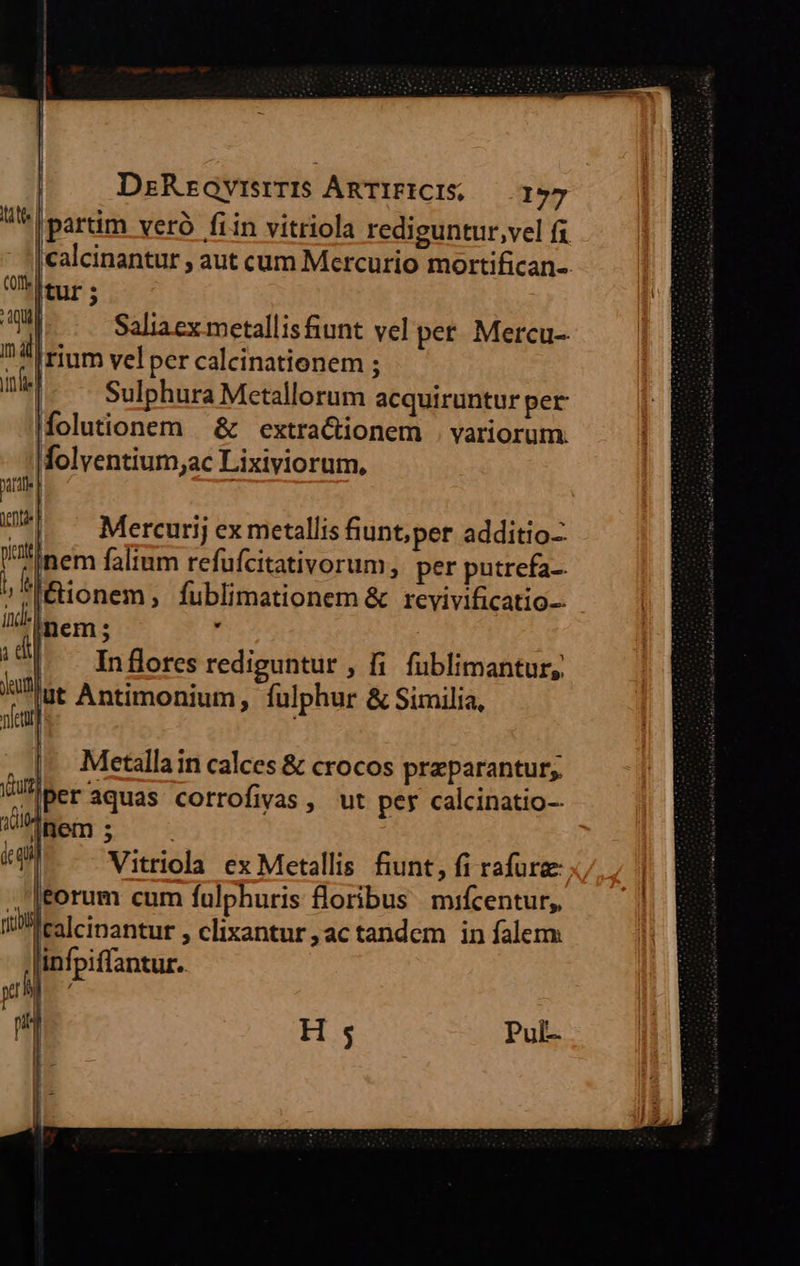 DE REQVISITIS ARTIFICIS, 177
partim verò ſi in vitriola rediguntur, vel ſi
calcinantur, aut cum Mercurio mortifican-
tur;
Salia ex metallis fiunt vel per Mercu-
rium vel per calcinationem;
Sulphura Metallorum acquiruntur per
ſolutionem & extractionem variorum
ſolventium, ac Lixiviorum,
Mercurij ex metallis fiunt, per additio-
nem ſalium reſuſcitativorum, per putrefa-
ctionem, ſublimationem & revivificatio-
nem;
In flores rediguntur, ſi ſublimantur,
ut Antimonium, ſulphur & Similia,
Metalla in calces & crocos præparantur,
per aquas corroſivas, ut per calcinatio-
nem;
Vitriola ex Metallis fiunt, ſi raſuræ
eorum cum ſulphuris floribus miſcentur,
calcinantur, elixantur, ac tandem in ſalem
inſpiſſantur.
H 5 Pul-